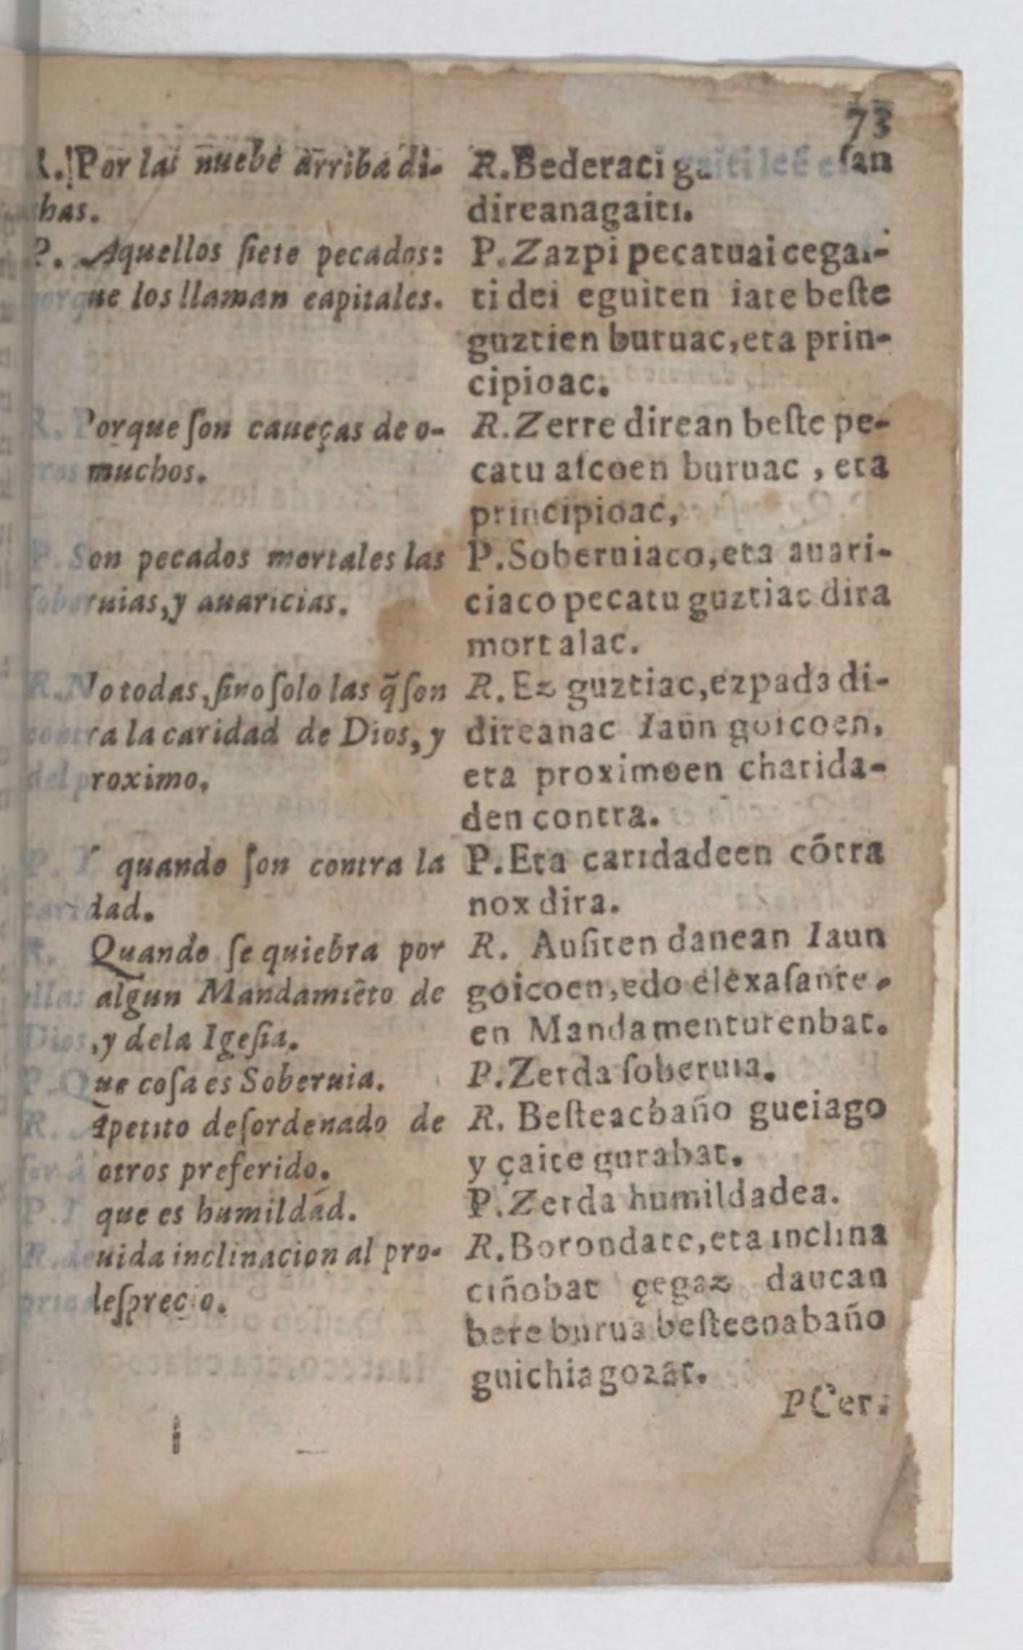 73
R. Por las nuebe arriba di-
chas.
P. Aquellos ſiete pecados:
porque los llaman capitales.
R. Porque ſon caueças de o-
tros muchos.
P. Son pecados mortales las
ſoberuias, y auaricias.
R. No todas, ſino ſolo las q̃ ſon
contra la caridad de Dios, y
del proximo.
P. Y quando ſon contra la
caridad.
R. Quando ſe quiebra por
ellas algun Mandamiẽto de
Dios, y dela Igeſia.
P. Que coſa es Soberuia.
R. Apetito deſordenado de
ſer á otros preferido.
P. I que es humildad.
R. deuida inclinacion al pro-
prio deſprecio.
R. Bederaci gaiti leẽ eſan
direanagaiti.
P. Zazpi pecatuai cegai-
ti dei eguiten iate beſte
guztien buruac, eta prin-
cipioac.
R. Zerre direan beſte pe-
catu aſcoen buruac, eta
principioac,
P. Soberuiaco, eta auari-
ciaco pecatu guztiac dira
mortalac.
R. Ez guztiac, ezpada di-
direanac Iaun goicoen,
eta proximoen charida-
den contra.
P. Eta caridadeen cõtra
nox dira.
R. Auſiten danean Iaun
goicoen, edo elexaſante-
en Mandamenturenbat.
P. Zerda ſoberuia.
R. Beſteacbaño gueiago
y çaite gurabat.
P. Zerda humildadea.
R. Borondate, eta inclina
ciñobat çegaz daucan
bere burua beſteenabaño
guichiagozat.
P Cer.